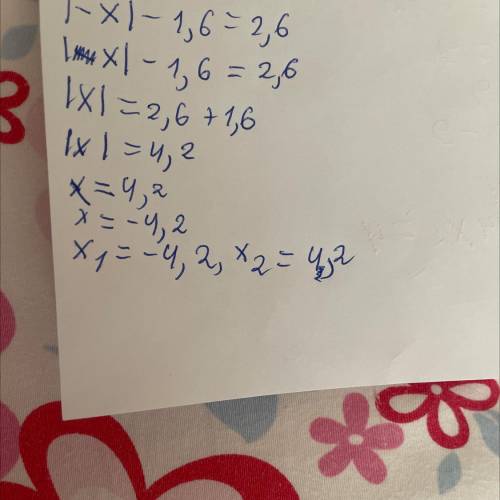 |-x|-1,6=2,6
|x|-1,6=2,6
|x|=2,6+1,6
|x|=4,2
x=4,2
x=-4,2
x1=-4,2, x2=4,2